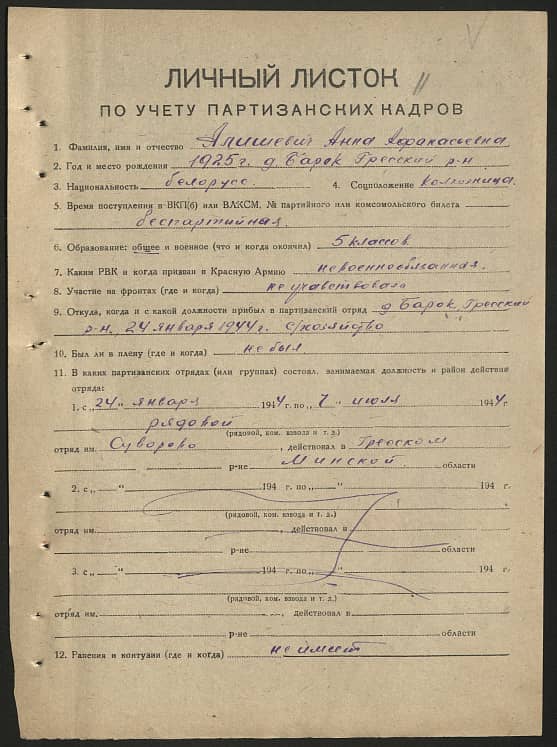 ЛИЧНЫЙ ЛИСТОК
ПО УЧЕТУ ПАРТИЗАНСКИХ КАДРОВ
1. Фамилия, имя и отчество Алишевич Анна Афанасьевна
2. Год и место рождения 1925 г. д. Барок Гресский р-н
3. Национальность белорусс. 4. Соцположение колхозница.
5. Время поступления в ВКП(б) или ВЛКСМ, № партийного или комсомольского билета
беспартийная.
6. Образование: общее и военное (что и когда окончил) 5 классов
7. Каким РВК и когда призван в Красную Армию невоеннообязанная.
8. Участие на фронтах (где и когда) не участвовала
9. Откуда, когда и с какой должности прибыл в партизанский отряд д. Барок, Гресский
р-н, 24 января 1944 г. с/хозяйство
10. Был ли в плену (где и когда) не был
11. В каких партизанских отрядах (или группах) состоял, занимаемая должность и район действия
отряда:
1. с „24“ января 1944 г. по „7“ июля 1944 г.
рядовой
(рядовой, ком. взвода и т. д.)
отряд им. Суворова, действовал в Гресском
р-не Минской области
2. с „ “ 194 г. по „ “ 194 г.
(рядовой, ком. взвода и т. д.)
отряд им. , действовал в
р-не области
3. с „ “ 194 г. по „ “ 194 г.
(рядовой, ком. взвода и т. д.)
отряд им. , действовал в
р-не области
12. Ранения и контузии (где и когда) не имеет